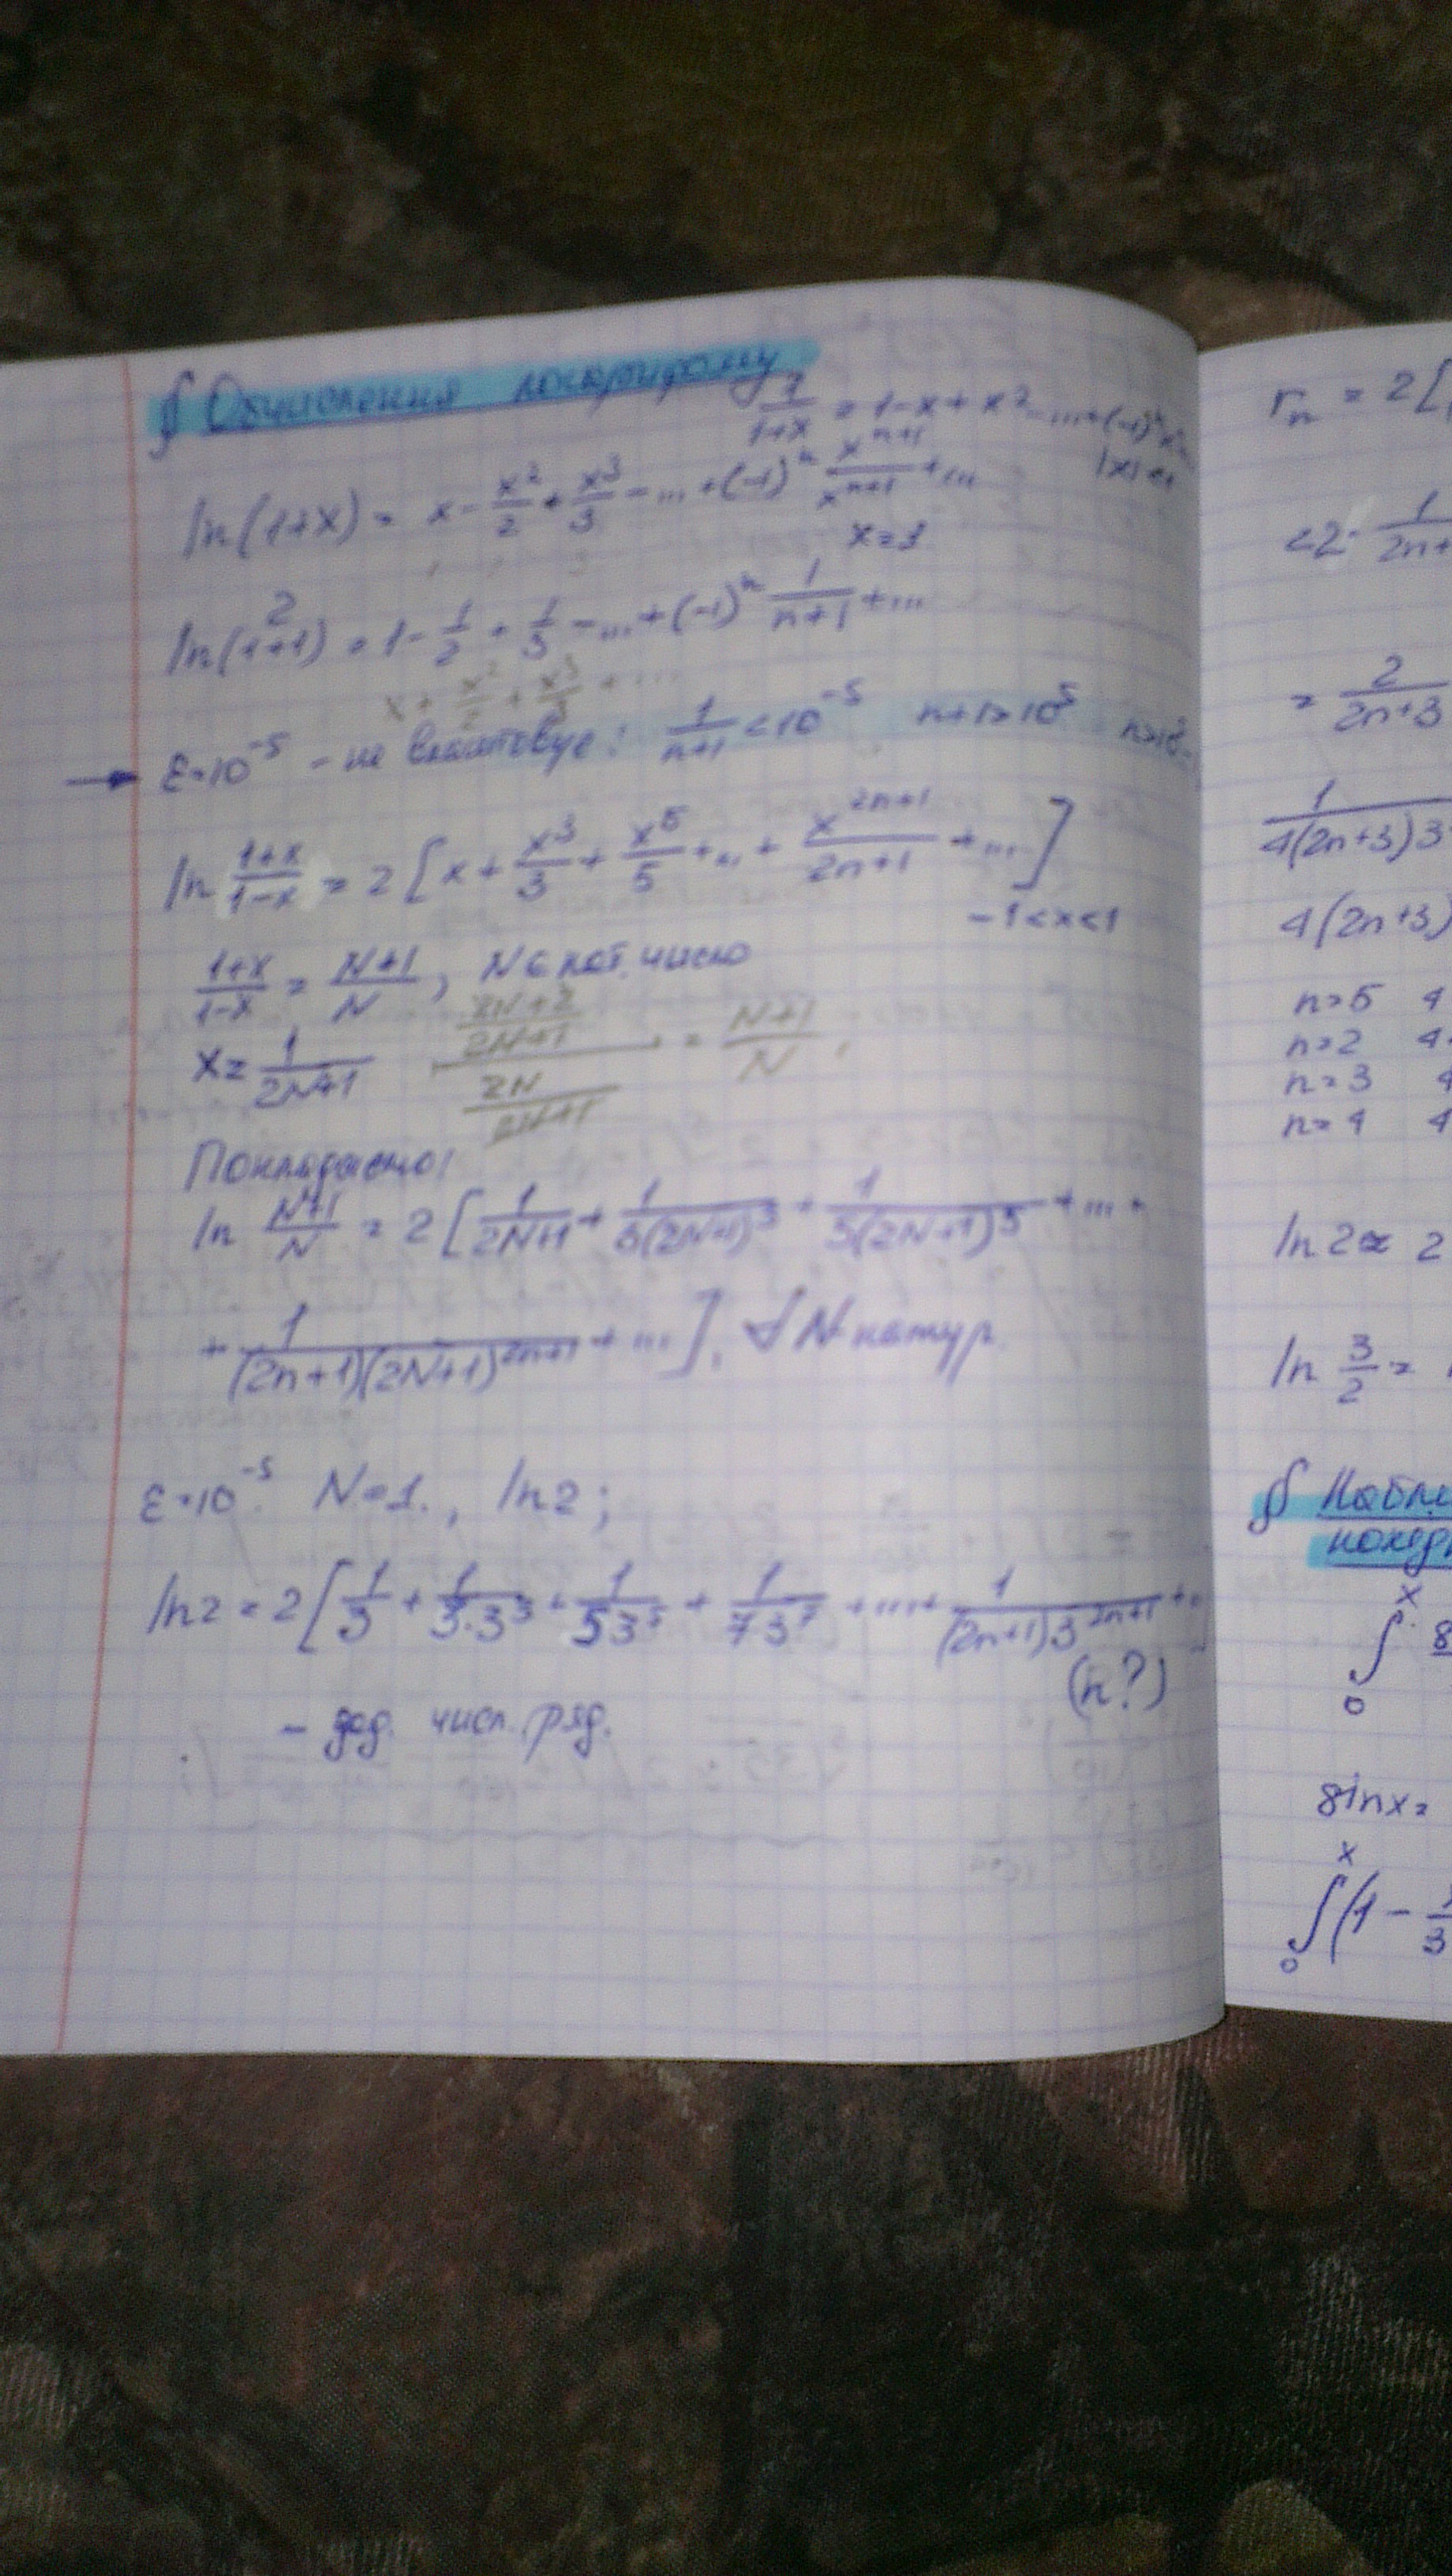 § Обчислення логарифму
1/(1+x) = 1-x+x²-...+(-1)ⁿxⁿ
|x|<1
ln(1+x) = x - x²/2 + x³/3 - ... + (-1)ⁿ xⁿ⁺¹/xⁿ⁺¹ + ...
x=1
2
ln(1+1) = 1 - 1/2 + 1/3 - ... + (-1)ⁿ 1/(n+1) + ...
x + x²/2 + x³/3 + ...
ε=10⁻⁵ - не влаштовує: 1/(n+1) < 10⁻⁵ n+1>10⁵
ln (1+x)/(1-x) = 2[x + x³/3 + x⁵/5 + ... + x²ⁿ⁺¹/(2n+1) + ...]
-1<x<1
(1+x)/(1-x) = (N+1)/N, N є нат. число
x = 1/(2N+1) ((2N+2)/(2N+1))/(2N/(2N+1)) = (N+1)/N
Покладемо:
ln (N+1)/N = 2[1/(2N+1) + 1/(3(2N+1)³) + 1/(5(2N+1)⁵) + ... +
+ 1/((2n+1)(2N+1)²ⁿ⁺¹) + ...], ∀ N натур.
ε=10⁻⁵. N=1., ln2;
ln2 = 2[1/3 + 1/(3·3³) + 1/(5 3⁵) + 1/(7 3⁷) + ... + 1/((2n+1)3²ⁿ⁺¹) + ..]
(n?)
- дод. числ. ряд.
rₙ = 2[
<2· 1/(2n+
= 2/(2n+3
1/(4(2n+3)3
4(2n+3)
n=5 4
n=2 4
n=3 4
n=4 4
ln2≈ 2
ln 3/2 =
§
∫₀ˣ
sinx=
∫₀ˣ(1 -